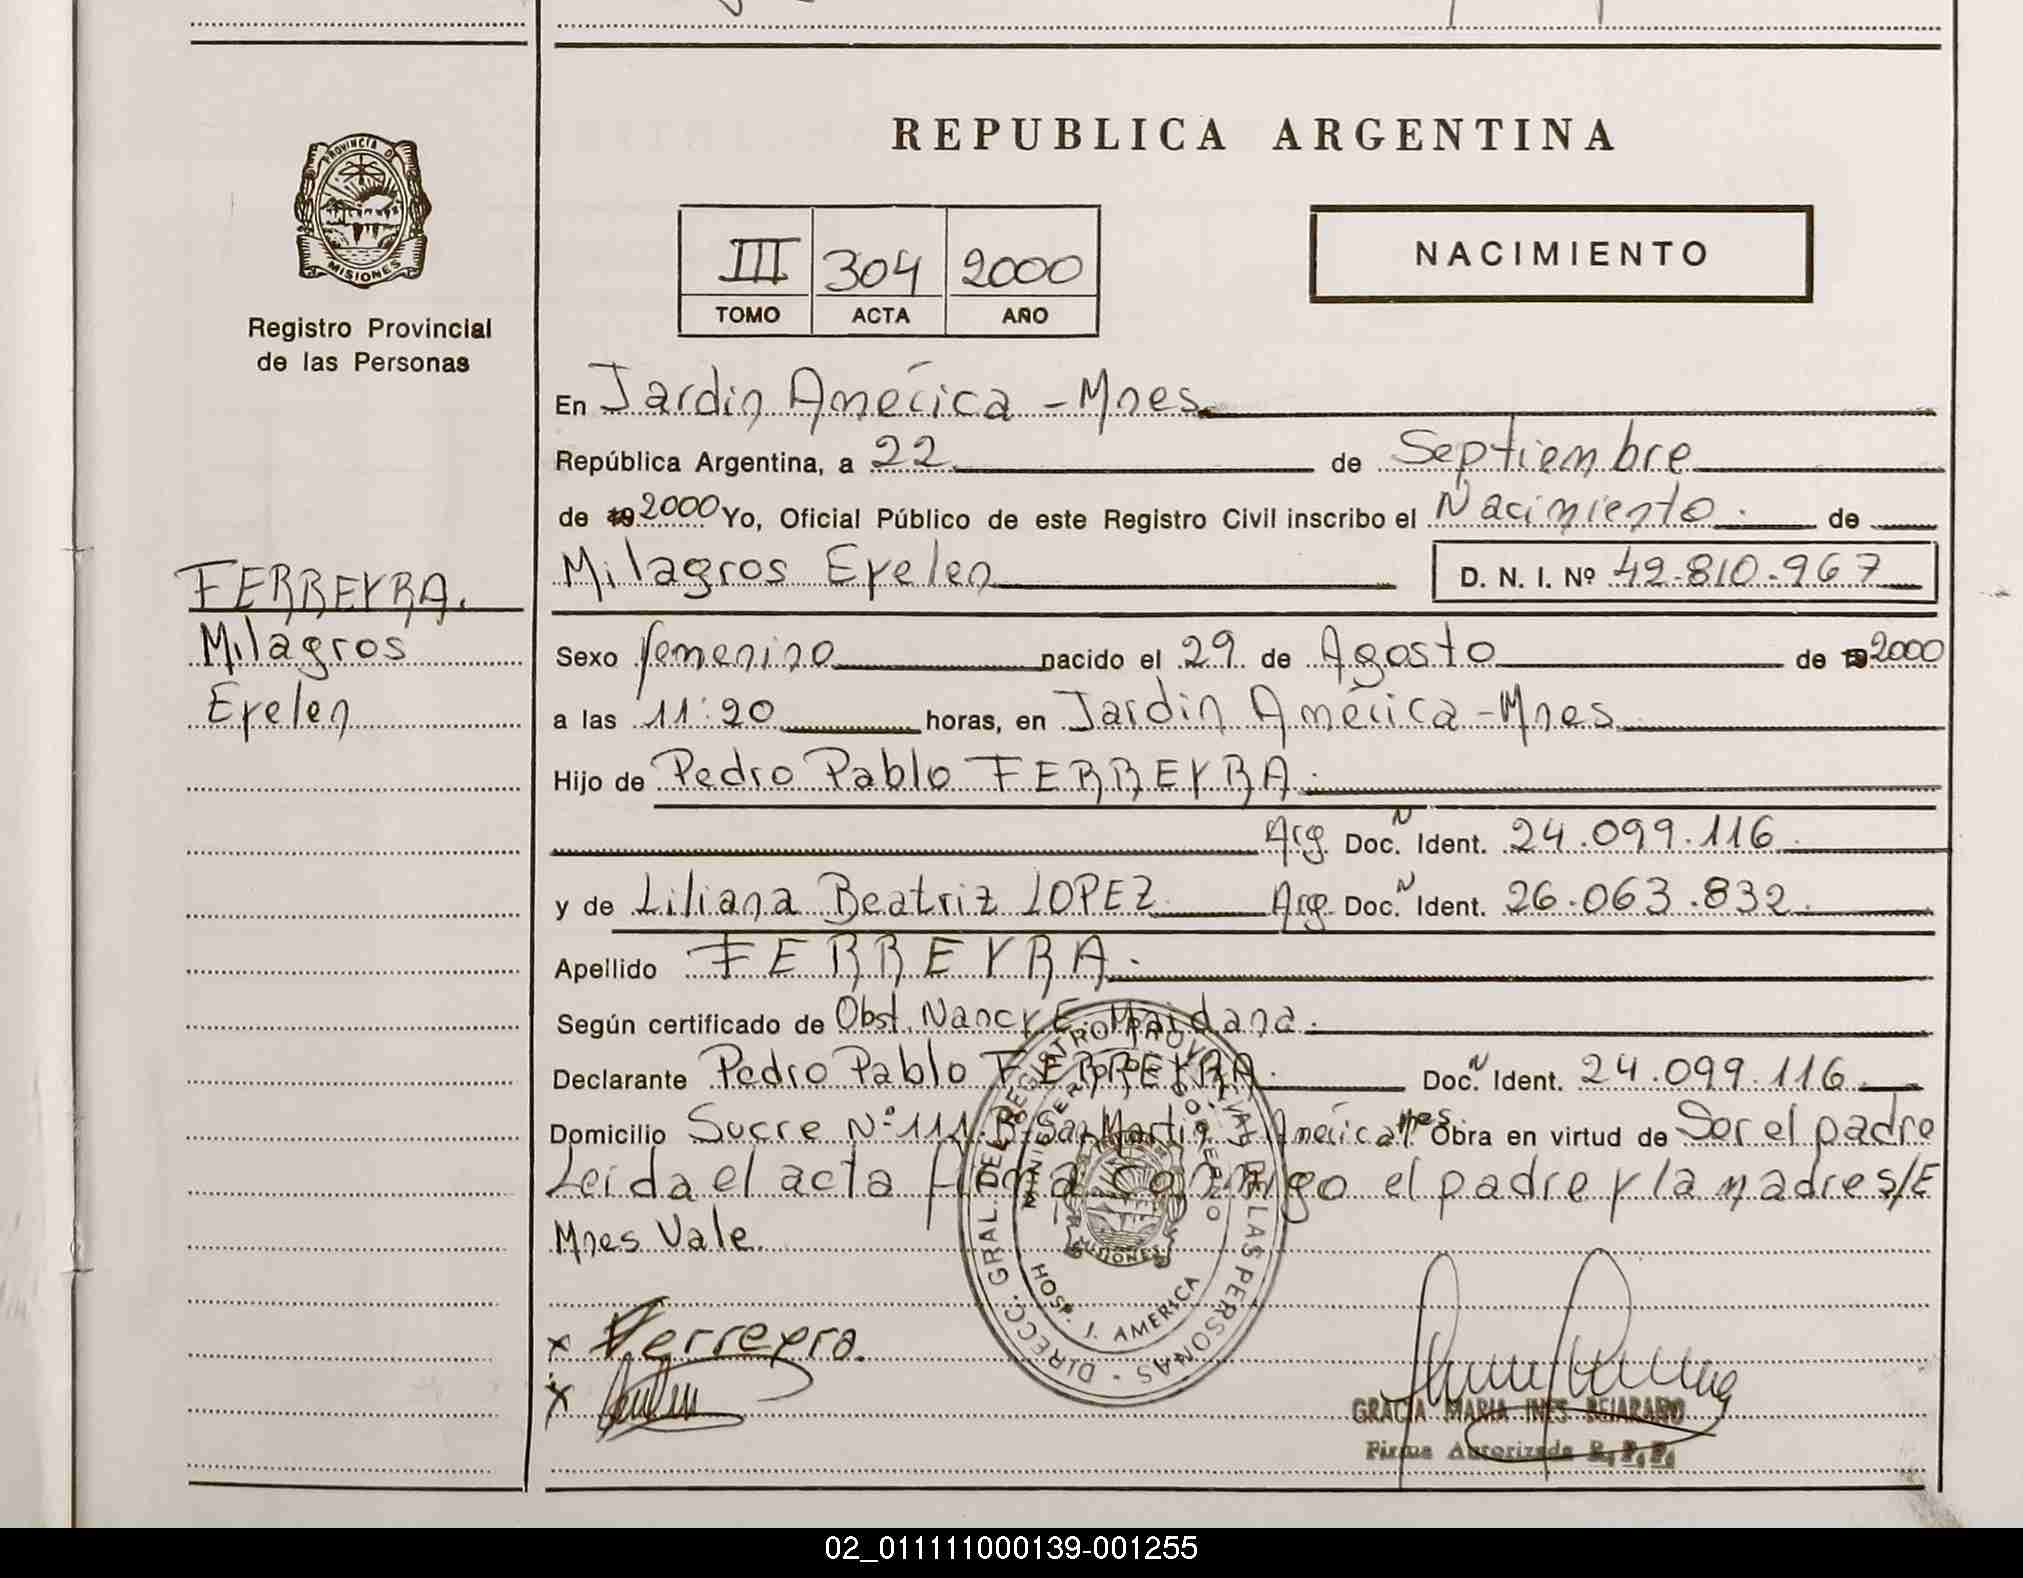 PROVINCIA DE
MISIONES
Registro Provincial
de las Personas
FERREYRA.
Milagros
Eyelen
REPUBLICA ARGENTINA
III 304 2000
TOMO ACTA AÑO
NACIMIENTO
En Jardin América - Mnes
República Argentina, a 22 de Septiembre
de 19 2000 Yo, Oficial Público de este Registro Civil inscribo el Nacimiento. de
Milagros Eyelen D. N. I. Nº 42.810.967
Sexo femenino nacido el 29 de Agosto de 19 2000
a las 11:20 horas, en Jardin América - Mnes
Hijo de Pedro Pablo FERREYRA.
Arg. Doc. N Ident. 24.099.116
y de Liliana Beatriz LOPEZ Arg. Doc. N Ident. 26.063.832
Apellido FERREYRA.
Según certificado de Obst. Nancy E. Maidana.
Declarante Pedro Pablo FERREYRA. Doc. N Ident. 24.099.116
Domicilio Sucre Nº 111 Bº San Martin J. América Mnes Obra en virtud de Ser el padre
Leida el acta firma conmigo el padre y la madre s/E
Mnes Vale.
DIRECC. GRAL. DEL REGISTRO PROVINCIAL DE LAS PERSONAS
MINISTERIO DE GOBIERNO
MISIONES
HOSP. J. AMERICA
x Ferreyra.
x
GRACIA MARIA INES BEJARANO
Firma Autorizada R.P.P.
02_011111000139-001255